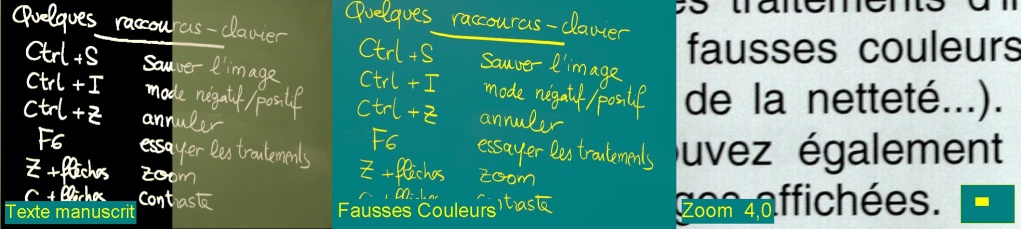 Quelques raccourcis - clavier
Ctrl + S Sauver l'image
Ctrl + I mode négatif/positif
Ctrl + Z annuler
F6 essayer les traitements
Z + flèches zoom
C + flèches contraste
Texte manuscrit
Quelques raccourcis - clavier
Ctrl + S Sauver l'image
Ctrl + I mode négatif/positif
Ctrl + Z annuler
F6 essayer les traitements
Z + flèches zoom
contraste
Fausses Couleurs
es traitements d'i
fausses couleurs
de la netteté...).
uvez également
affichées.
Zoom 4,0